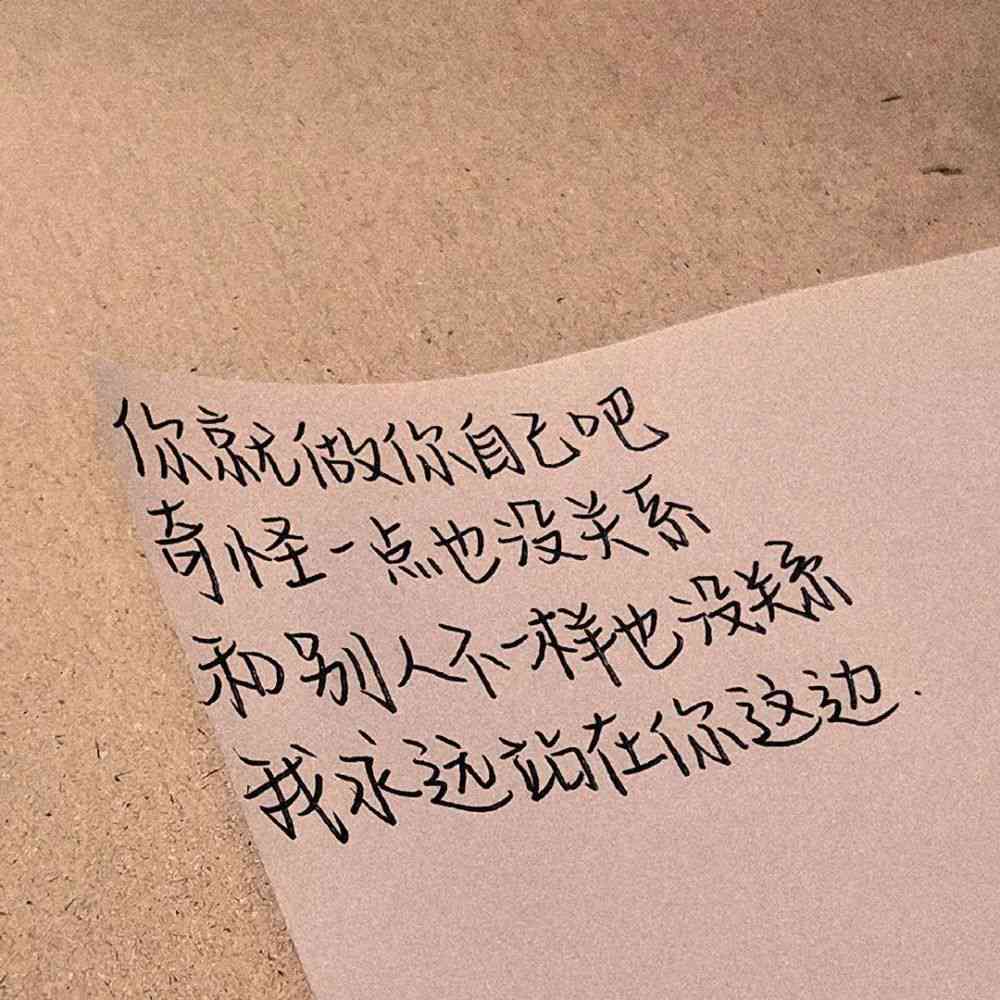 你就做你自己吧
奇怪一点也没关系
和别人不一样也没关系
我永远站在你这边.